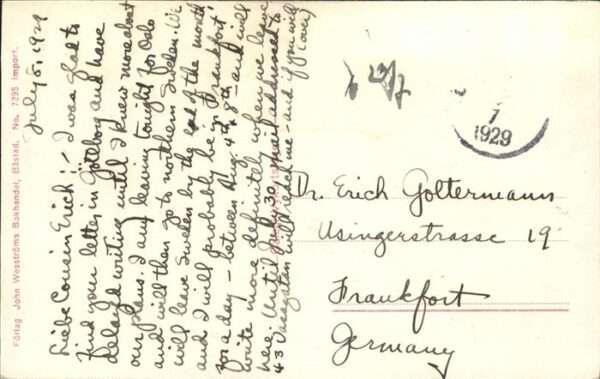 July 5, 1929
Liebe Cousin Erich! - I was glad to
find your letter in Göteborg and have
delayed writing until I knew more about
our plans. I am leaving tonight for Oslo
and will then go to northern Sweden. We
will leave Sweden by the end of the month
and I will probably be in Frankfort
for a day - between Aug. 4th & 8th - and will
write more definitely when we leave
here. Until July 30, mail addressed to
43 Vasagatan will reach me - and if you will
Förlag John Wesströms Bokhandel, Båstad. No. 7295 Import.
7
1929
Dr. Erich Goltermann
Usingerstrasse 19
Frankfort
Germany